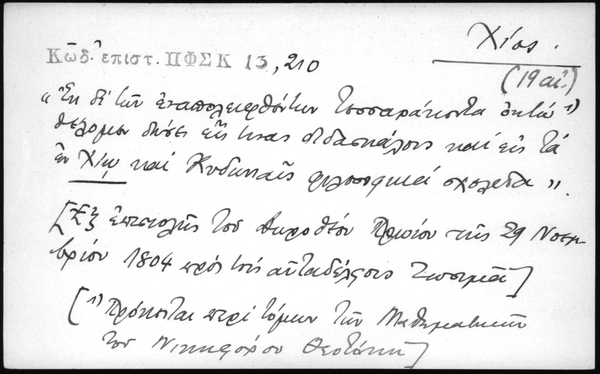 Χίος.
(19 αἰ.)
Κῶδ. ἐπιστ. ΠΦΣΚ 13, 210
"Ἐκ δὲ τῶν ἐναπολειφθέντων τεσσαράκοντα ὀκτώ ¹)
θέλομεν δώσει εἴς τινας διδασκάλους καὶ εἰς τὰ
ἐν Χίῳ καὶ Κυδωνίαις φιλοσοφικὰ σχολεῖα".
[Ἐξ ἐπιστολῆς τοῦ Δωροθέου Πρωίου τῆς 29 Νοεμ-
βρίου 1804 πρὸς τοὺς αὐταδέλφους Ζωσιμᾶ]
[¹) Πρόκειται περὶ τόμων τῶν Μαθηματικῶν
τοῦ Νικηφόρου Θεοτόκη]